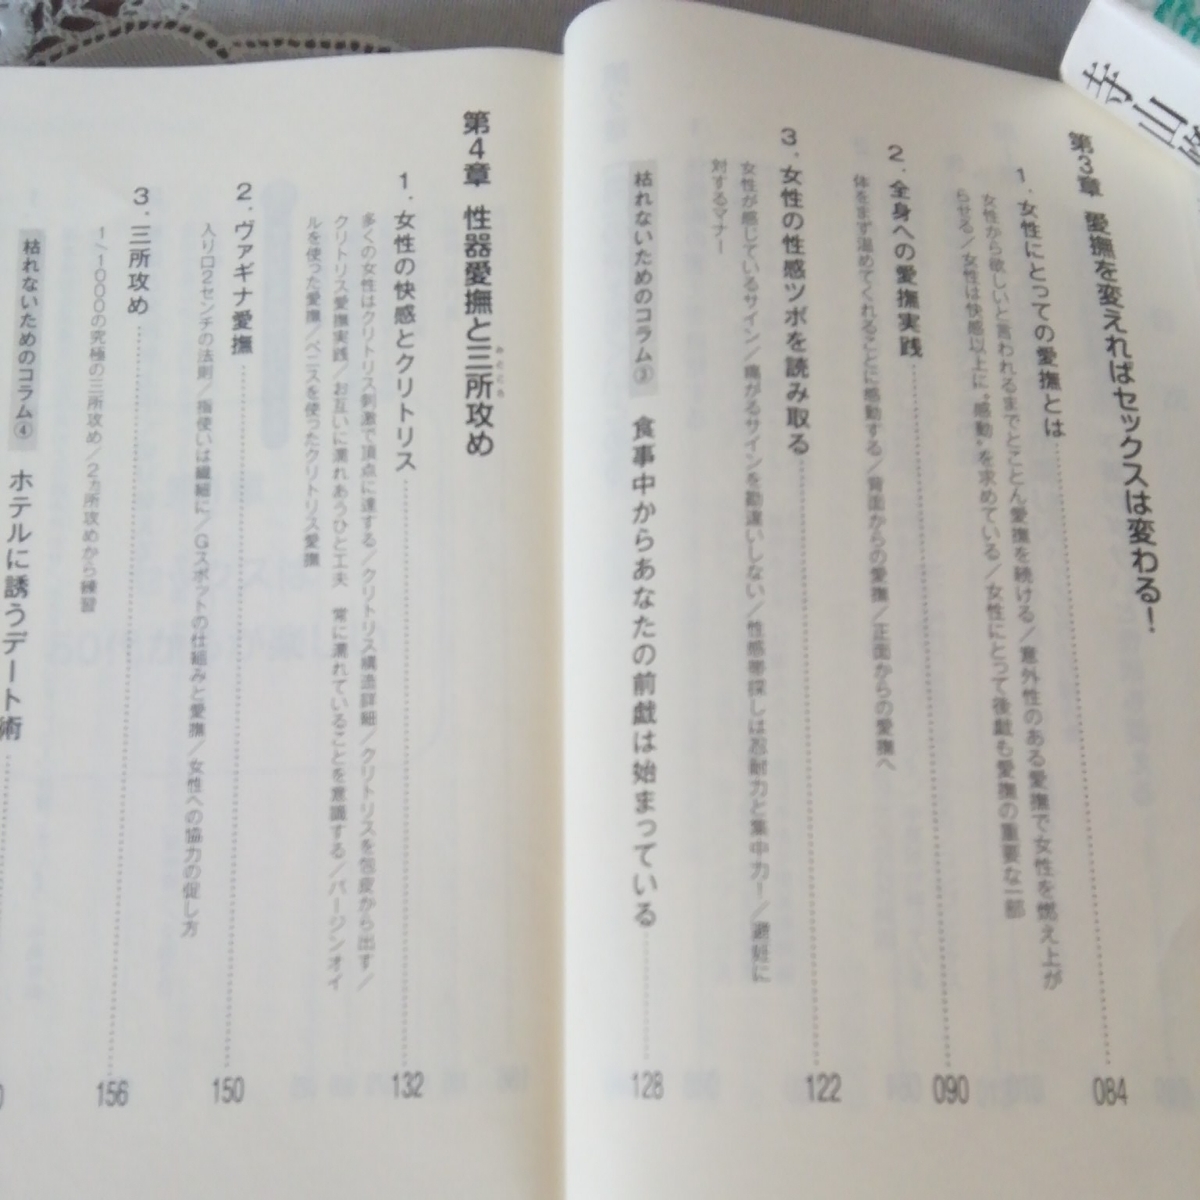 寺山
第3章 愛撫を変えればセックスは変わる!
1. 女性にとっての愛撫とは 084
女性から欲しいと言われるまでとことん愛撫を続ける/意外性のある愛撫で女性を燃え上が
らせる/女性は快感以上に“感動”を求めている/女性にとって後戯も愛撫の重要な一部
2. 全身への愛撫実践 090
体をまず温めてくれることに感動する/背面からの愛撫/正面からの愛撫へ
3. 女性の性感ツボを読み取る 122
女性が感じているサイン/痛がるサインを勘違いしない/性感帯探しは忍耐力と集中力!/避妊に
対するマナー
枯れないためのコラム③ 食事中からあなたの前戯は始まっている 128
第4章 性器愛撫と三所攻め
みところ
1. 女性の快感とクリトリス 132
多くの女性はクリトリス刺激で頂点に達する/クリトリス構造詳細/クリトリスを包皮から出す/
クリトリス愛撫実践/お互いに濡れあうひと工夫 常に濡れていることを意識する/バージンオイ
ルを使った愛撫/ペニスを使ったクリトリス愛撫
2. ヴァギナ愛撫 150
入り口2センチの法則/指使いは繊細に/Gスポットの仕組みと愛撫/女性への協力の促し方
3. 三所攻め 156
1/1000の究極の三所攻め/2ヵ所攻めから練習
枯れないためのコラム④ ホテルに誘うデート術